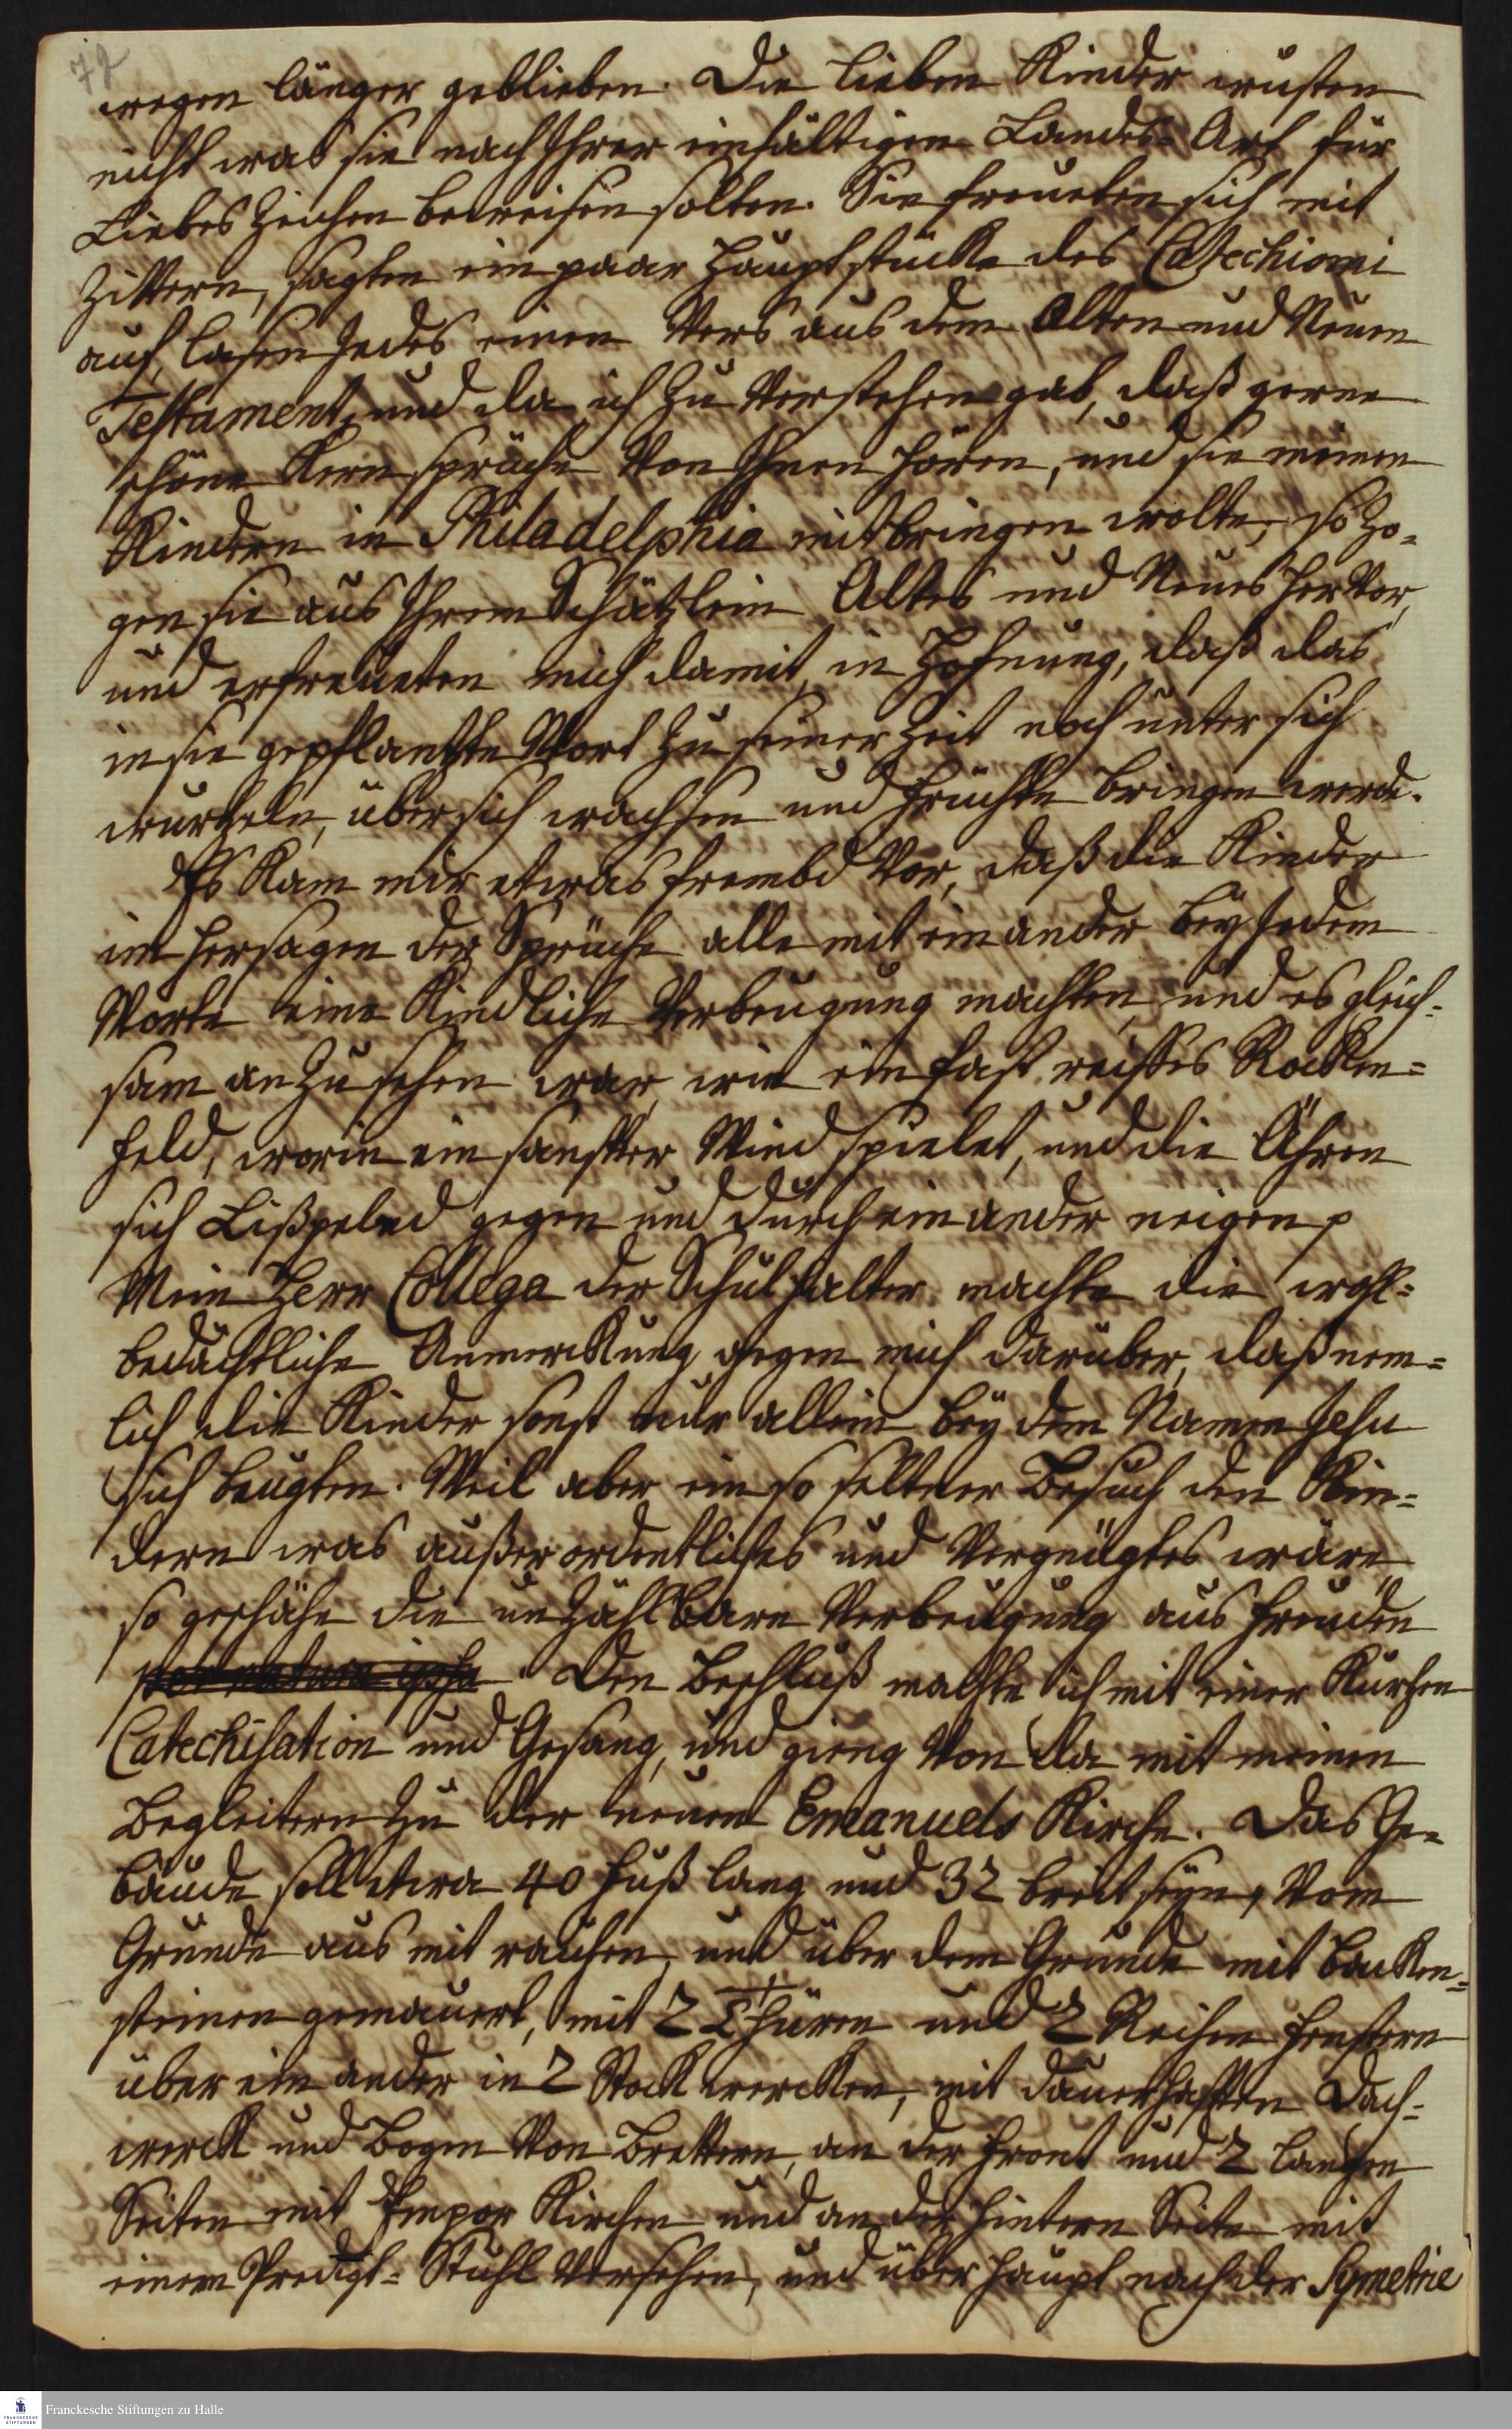 72
wegen länger geblieben. Die lieben Kinder wusten
nicht was sie nach Ihrer einfältigen Landes-Art für
Liebes Zeichen beweisen solten. Sie freueten sich mit
Zittern, sagten ein paar Hauptstücke des Catechismi
auf, lasen Jedes einen Vers aus dem Alten und Neuen
Testament, und da ich zu verstehen gab, daß gerne
schöne Kern sprüche von Ihnen hören, und sie meinen
Kindern in Philadelphia mitbringen wolte, so zo-
gen sie aus Ihrem Schätzlein Altes und Neues hervor,
und erfreueten mich damit, in Hofnung, daß das
in sie gepflantzte Wort zu seiner Zeit noch unter sich
wurtzeln, über sich wachsen und Früchte bringen werde.
Es kam mir etwas frembd vor, daß die Kinder
im hersagen der Sprüche alle mit einander bey Jedem
Worte eine Kindliche Verbeugung machten, und es gleich-
sam anzusehen war, wie ein fast reiffes Rocken-
feld, worin ein sanfter Wind spielet, und die Ähren
sich Lißpelnd gegen und durch einander neigen p
Mein Herr Collega der Schulhalter machte die wohl-
bedächtliche Anmerckung gegen mich darüber, daß nem-
lich die Kinder sonst nur allein bey dem Namen Jesu
sich beugten. Weil aber ein so seltner Besuch den Kin-
dern was außerordentliches und Vergnügtes wäre,
so geschähe die unzählbare Verbeugung aus Freuden
. Den Beschluß machte ich mit einer Kurtzen
Catechisation und Gesang, und gieng von da mit meinen
Begleitern zu der neuen Emanuels Kirche. Das Ge-
bäude soll etwa 40 Fuß lang und 32 breit seyn, Vom
Grunde aus mit rauhen, und über dem Grunde mit Backen-
steinen gemauert, mit 2 Thüren und 2 Reihen Fenstern
über einander in 2 Stockwercken, mit dauerhaften Dach-
werck und Bogen von Brettern, an der Front und 2 langen
Seiten mit Empor Kirchen und an der hintern Seite mit
einem Predigt-Stuhl versehen, und überhaupt nach der Symetrie
Franckesche Stiftungen zu Halle